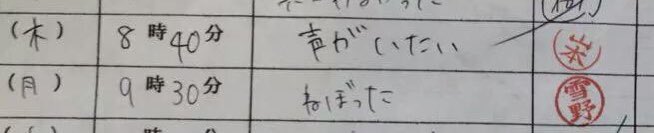 (木) 8時40分 声がいたい
(月) 9時30分 ねぼった 雪野